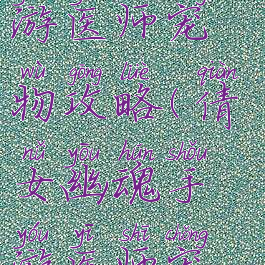 游医师宠
wù gōng lüè qiàn
物攻略(倩
nǚ yōu hún shǒu
女幽魂手
yóu yī shī chǒng
游医师宠